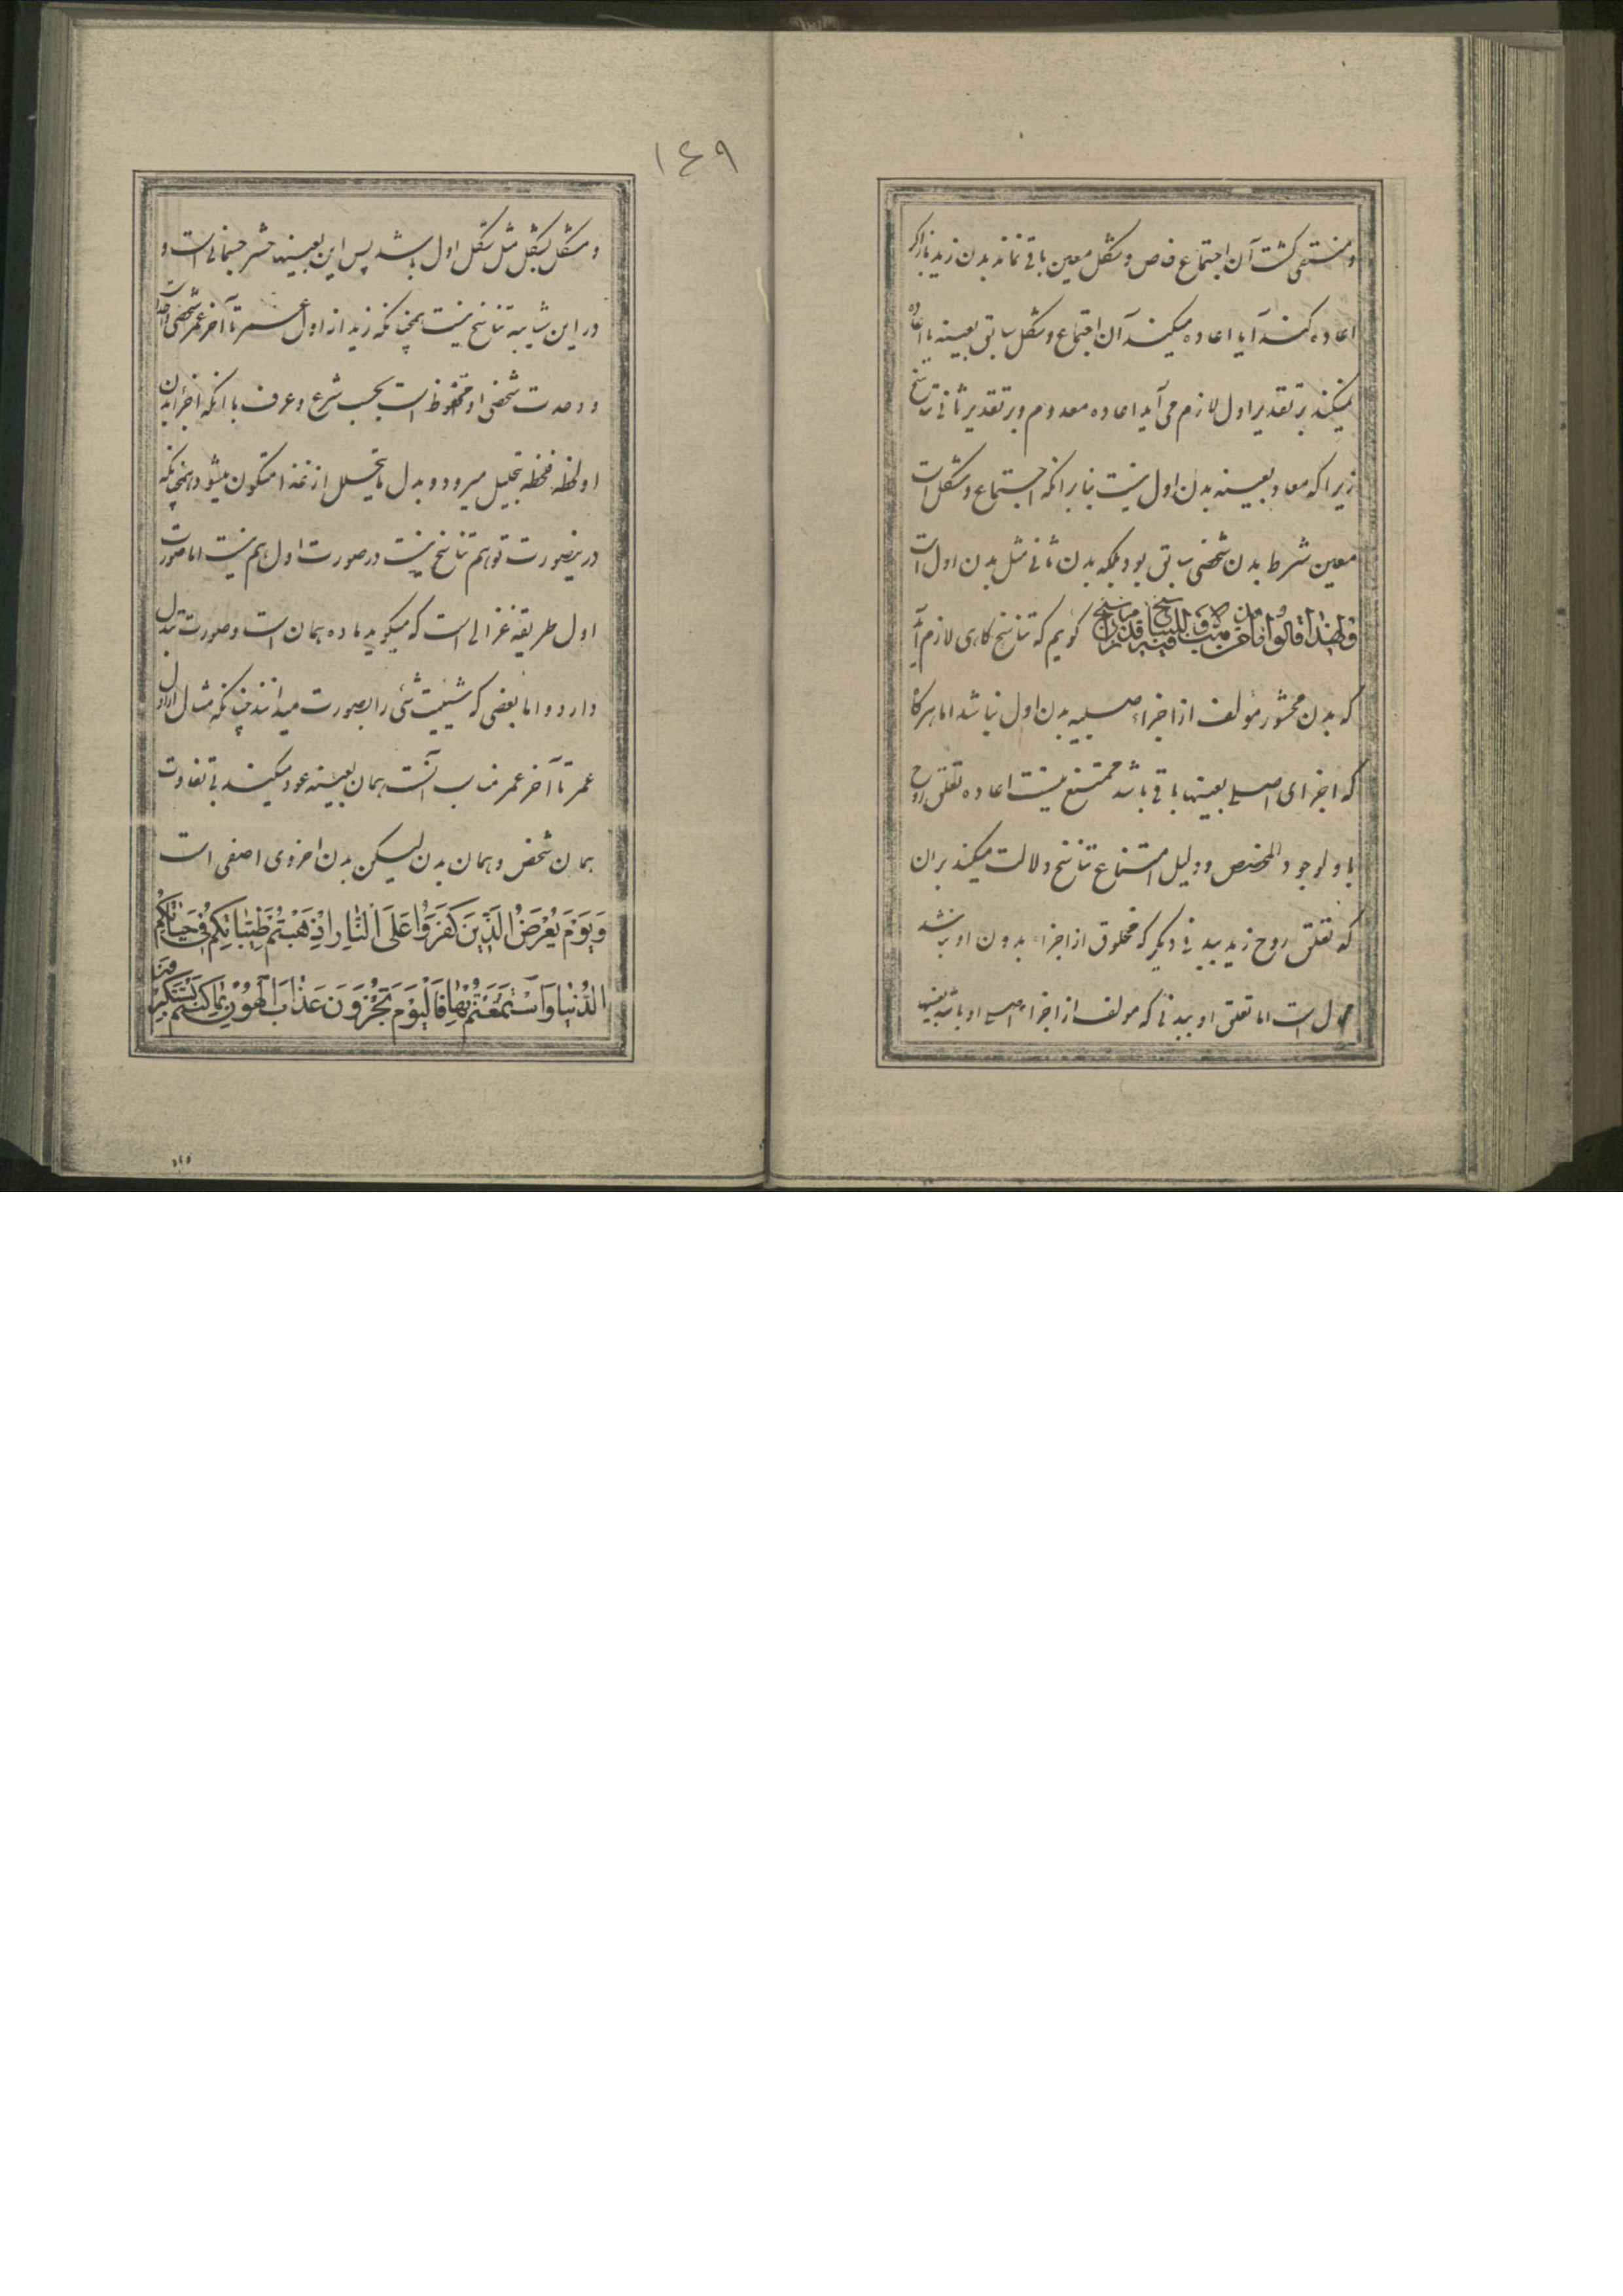 و منتفی کشت آن اجتماع خاص و شکل معین باقی نماند بدن زید باز اکر
اعاده کنند آیا اعاده میکنند آن اجتماع و شکل سابق بعینه یا اعاده
نمیکنند بر تقدیر اول لازم می آید اعاده معدوم و بر تقدیر ثانی تناسخ
زیرا که معاد بعینه بدن اول نیست بنابر انکه اجتماع و شکل است
معین شرط بدن شخصی سابق بود بلکه بدن ثانی مثل بدن اول است
وَلِهٰذا قالُوا ما مِن مَذهَبٍ اِلّا وَ لِلتَّناسُخِ فیهِ قَدَمٌ راسِخٌ کوئیم که تناسخ کاهی لازم آید
که بدن محشور مؤلف از اجزاء اصلیه بدن اول نباشد اما هرکاه
که اجزای اصلی بعینها باقی باشد ممتنع نیست اعاده تعلق روح
باو لوجود المخصص و دلیل امتناع تناسخ دلالت میکند بران
که تعلق روح زید ببدنی دیکر که مخلوق از اجزاء بدون او باشد
است اما تعلق او ببدنی که مولف از اجزاء اصلی او باشد بعینها
١٤٩
و مشکل بشکل مثل شکل اول باشد پس این بعینها حشر جسمانی است و
در این شایبه تناسخ نیست همچنانکه زید از اول عمر تا آخر عمر شخصی واحد است
و وحدت شخصی او محفوظ است بحسب شرع و عرف با انکه اجزا بدن
او لحظه فلحظه بتحلیل میرود و بدل ما یتحلل از غذا متکون میشود همچنانکه
درینصورت توهم تناسخ نیست در صورت اول هم نیست اما صورت
اول طریقه غزالی است که میکوید ماده همان است و صورت تبدل
دارد و اما بعضی که شیئیت شئ را بصورت میدانند چنانکه مثال از اول
عمر تا آخر عمر مناسب آنست همان بعینه عود میکند بی تفاوت
همان شخص و همان بدن لیکن بدن اخروی اصفی است
وَيَوْمَ يُعْرَضُ الَّذِينَ كَفَرُوا عَلَى النَّارِ اذْهَبْتُمْ طَيِّبَاتِكُمْ فِي حَيَاتِكُمُ
الدُّنْيَا وَاسْتَمْتَعْتُمْ بِهَا فَالْيَوْمَ تُجْزَوْنَ عَذَابَ الْهُونِ بِمَا كُنْتُمْ تَسْتَكْبِرُونَ